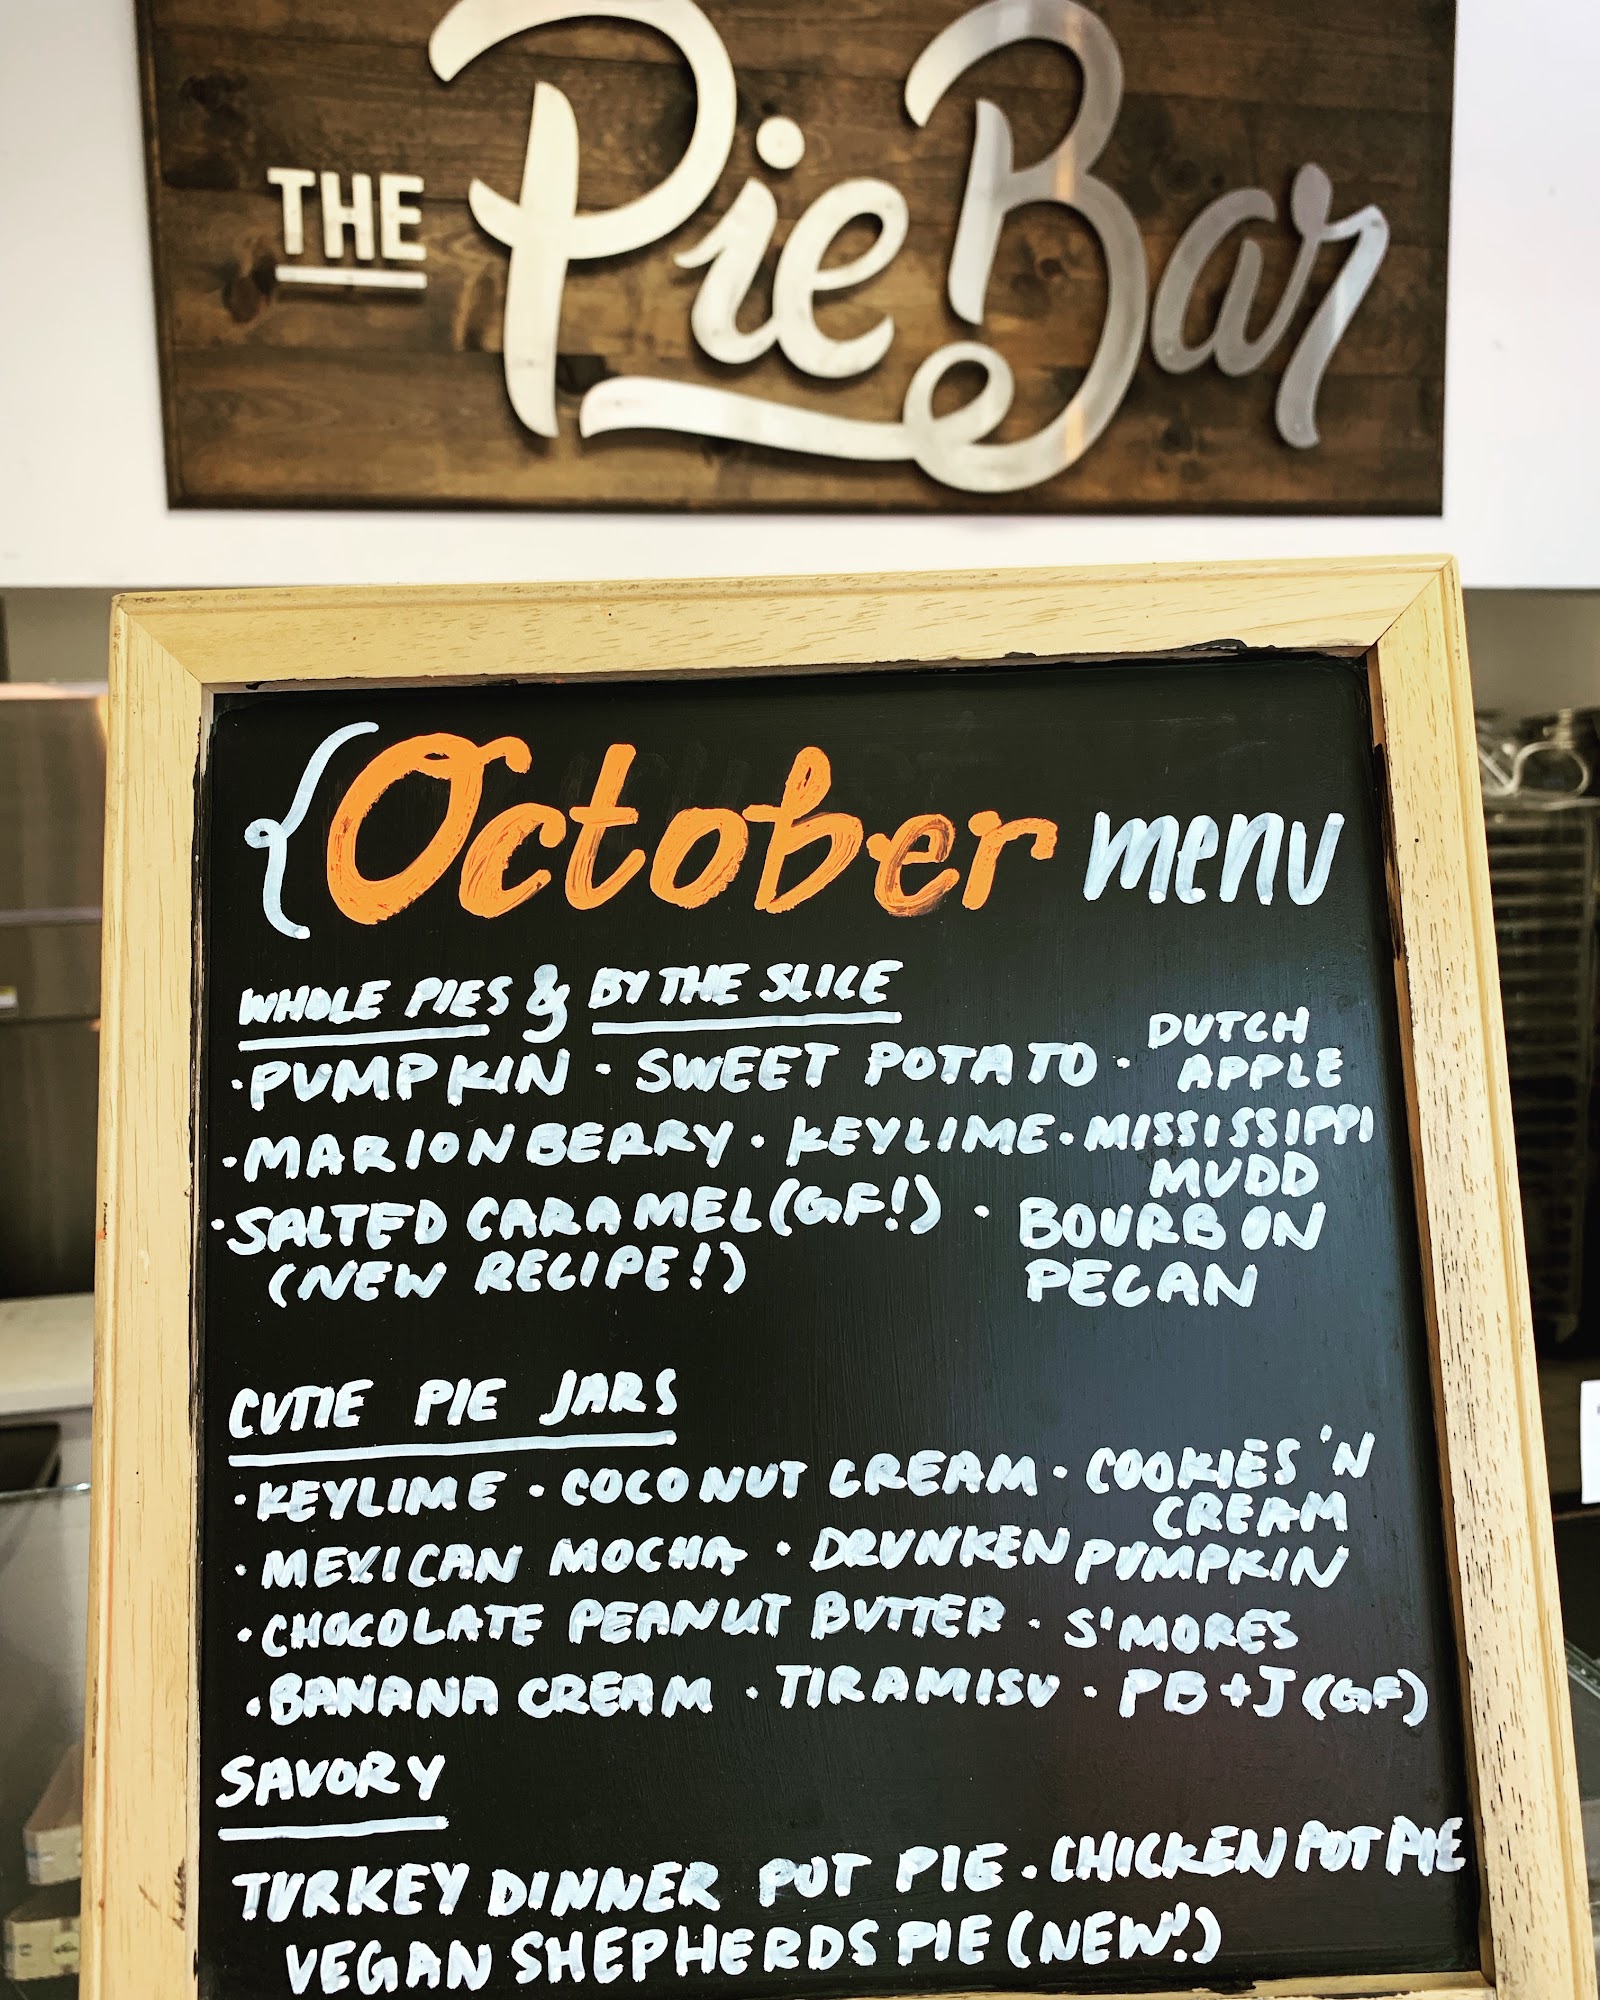 THE Pie Bar
{October menu
WHOLE PIES & BY THE SLICE
·PUMPKIN · SWEET POTATO · DUTCH APPLE
·MARIONBERRY · KEYLIME · MISSISSIPPI MUDD
·SALTED CARAMEL (GF!) · BOURBON PECAN
(NEW RECIPE!)
CUTIE PIE JARS
·KEYLIME · COCONUT CREAM · COOKIES 'N CREAM
·MEXICAN MOCHA · DRUNKEN PUMPKIN
·CHOCOLATE PEANUT BUTTER · S'MORES
·BANANA CREAM · TIRAMISU · PB+J (GF)
SAVORY
TURKEY DINNER POT PIE · CHICKEN POT PIE
VEGAN SHEPHERDS PIE (NEW!)